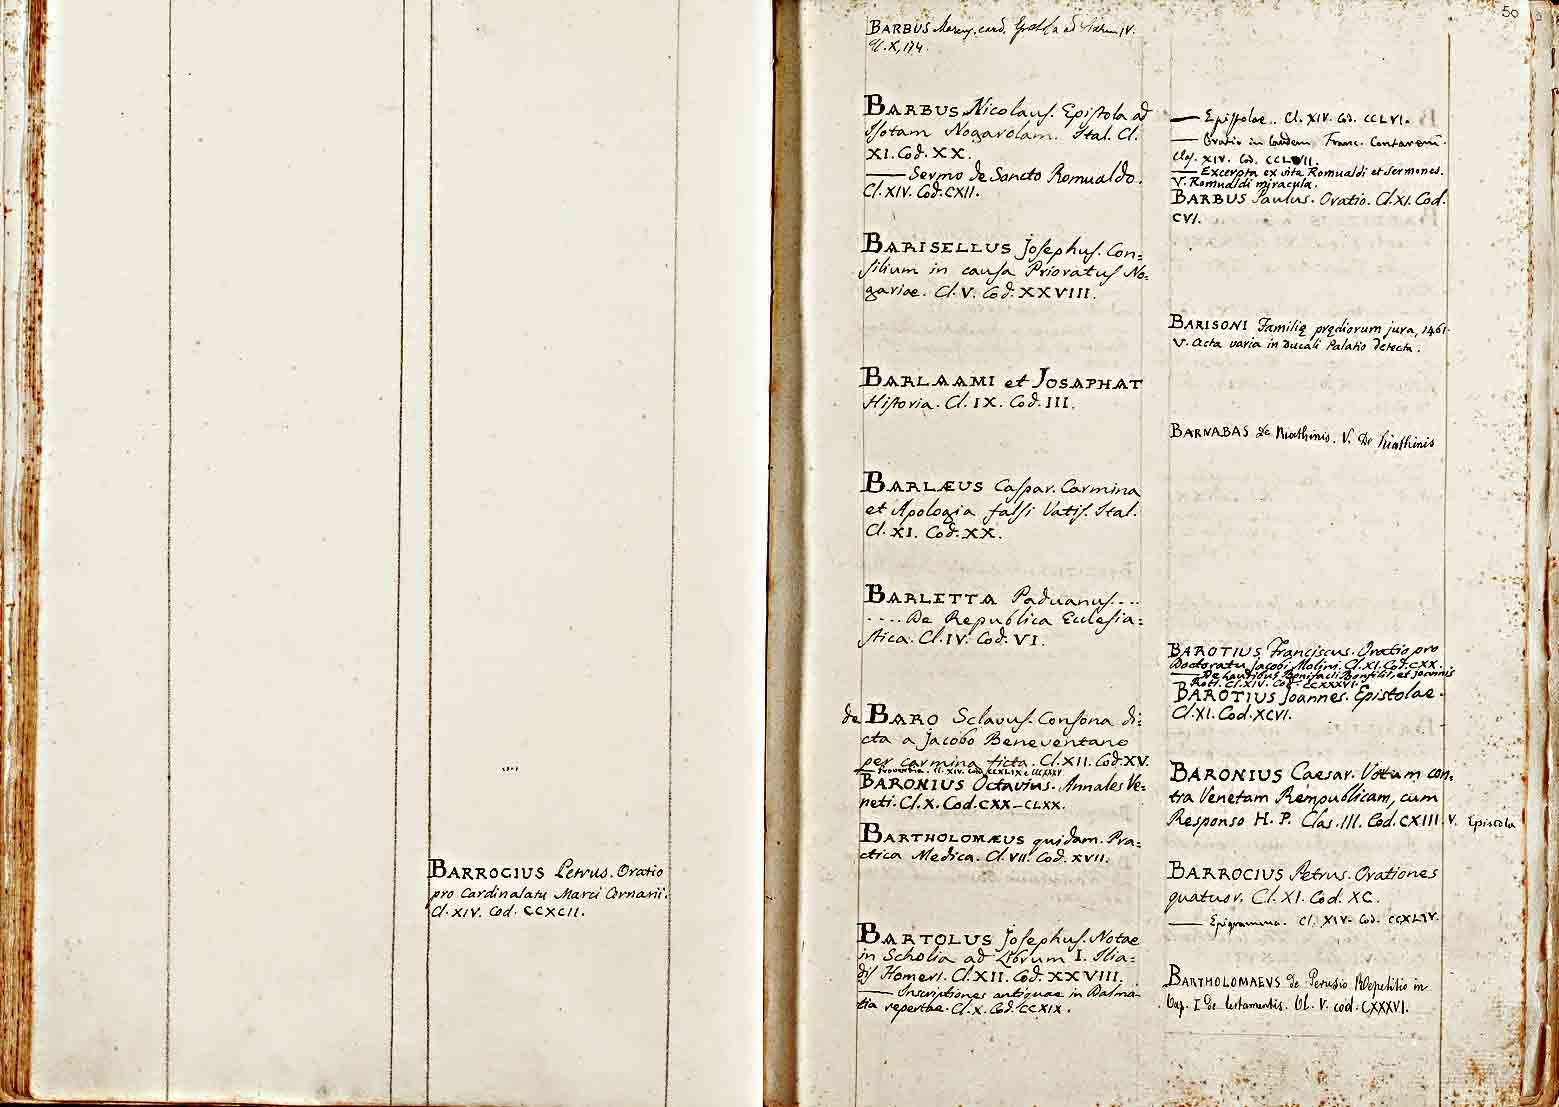 BARROCIUS Petrus. Oratio
pro Cardinalatu Marci Cornarii.
Cl. XIV. Cod. CCXCII.
50
BARBUS Marcus. card. ad IV.
Cl. X, 174.
BARBUS Nicolaus. Epistola ad
Isotam Nogarolam. Ital. Cl.
XI. Cod. XX.
—— Sermo de Sancto Romualdo.
Cl. XIV. Cod. CXII.
BARISELLUS Josephus. Con=
silium in causa Prioratus No=
gariae. Cl. V. Cod. XXVIII.
BARLAAMI et JOSAPHAT
Historia. Cl. IX. Cod. III.
BARLÆUS Caspar. Carmina
et Apologia falsi Vatis. Ital.
Cl. XI. Cod. XX.
BARLETTA Paduanus....
.... De Republica Ecclesia=
stica. Cl. IV. Cod. VI.
de BARO Sclavus. Consona di=
cta a Jacobo Beneventano
per carmina ficta. Cl. XII. Cod. XV.
—— Proverbia. Cl. XIV. Cod. CCXLIX e
BARONIUS Octavius. Annales Ve=
neti. Cl. X. Cod. CXX–CLXX.
BARTHOLOMÆUS quidam. Pra=
ctica Medica. Cl. VII. Cod. XVII.
BARTOLUS Josephus. Notae
in Scholia ad Librum I. Ilia=
dis Homeri. Cl. XII. Cod. XXVIII.
—— Inscriptiones antiquae in Dalma=
tia repertae. Cl. X. Cod. CCXIX.
—— Epistolae. Cl. XIV. Cod. CCLVI.
—— Oratio in laudem Franc. Contareni.
Clas. XIV. Cod. CCLVII.
—— Excerpta ex vita Romualdi et sermones.
V. Romualdi miracula.
BARBUS Paulus. Oratio. Cl. XI. Cod.
CVI.
BARISONI Familię prędiorum jura, 1461.
V. Acta varia in Ducali Palatio detecta.
BARNABAS De . V. De
BAROTIUS Franciscus. Oratio pro
Doctoratu Jacobi Molini. Cl. XI. Cod. CXX.
—— De laudibus Bonifacii et Joannis
Cl. XIV. Cod. CCXXXVI.
BAROTIUS Joannes. Epistolae.
Cl. XI. Cod. XCVI.
BARONIUS Caesar. Votum con=
tra Venetam Rempublicam, cum
Responso H. P. Clas. III. Cod. CXIII. V. Epistola
BARROCIUS Petrus. Orationes
quatuor. Cl. XI. Cod. XC.
—— Epigramma. Cl. XIV. Cod. CCXLIV.
BARTHOLOMAEVS de Perusio Repetitio in
Cap. I de testamentis. Cl. V. cod. CXXXVI.